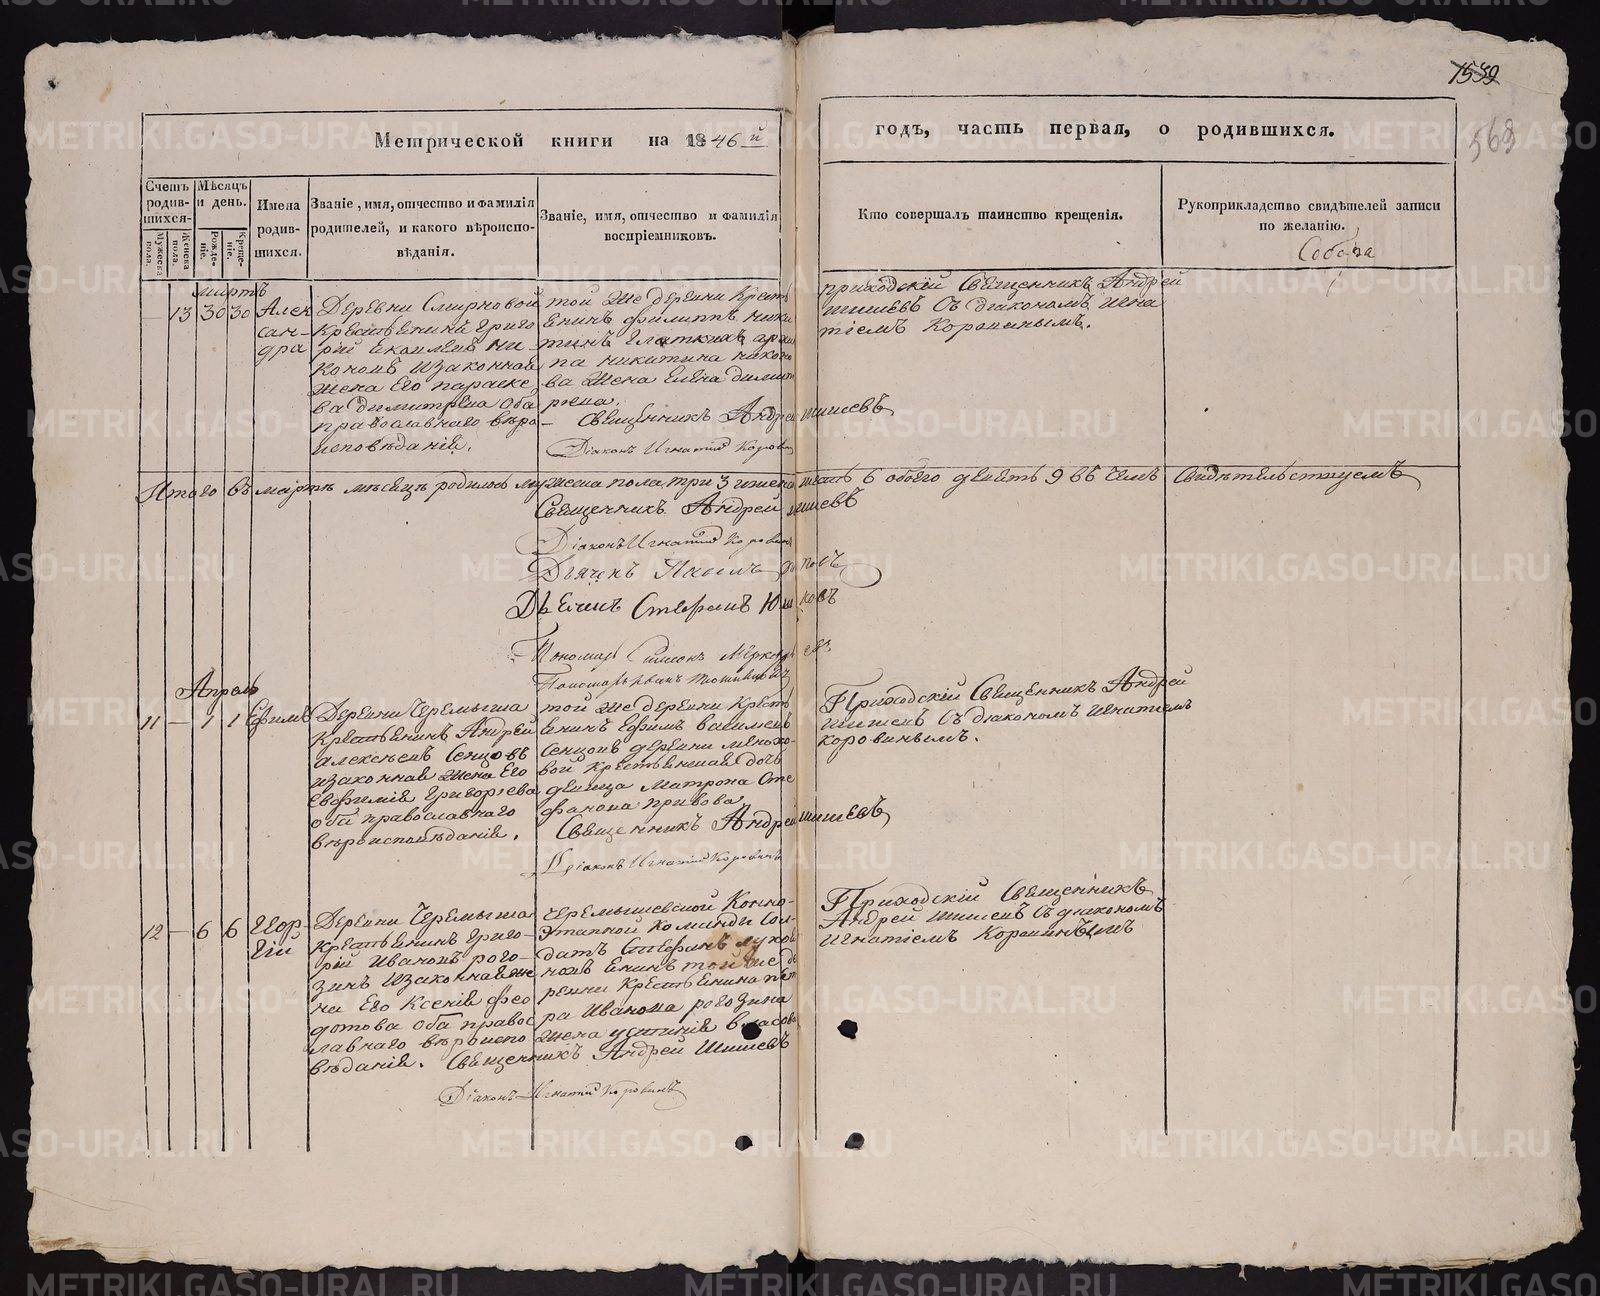 1539
568
Метрической книги на 1846й
годъ, часть первая, о родившихся.
Счетъ родив-
шихся.
Мужеска пола.
Женска пола.
Мѣсяцъ
и день.
Рожде-
ніе.
Креще-
ніе.
Имена
родив-
шихся.
Званіе, имя, отчество и фамилія
родителей, и какого вѣроиспо-
вѣданія.
Званіе, имя, отчество и фамилія
воспріемниковъ.
Кто совершалъ таинство крещенія.
Рукоприкладство свидѣтелей записи
по желанію.
мартъ
— 13 30 30
Алек
сан-
дра
Деревни Смирновой
крестьянинъ Григо
рій
изаконная
жена Его параске
ва димитріева оба
православнаго вѣро
исповѣданія.
той же деревни Крест
янинъ филиппъ ники
тинъ
па никитина
ва жена Елена димит
ріева.
Священникъ Андрей шишевъ
Діаконъ Игнатій Коровинъ
приходскій Священникъ Андрей
шишевъ съ діакономъ игна
тіемъ Коровинымъ.
Итого въ мартѣ мѣсяцѣ родилось мужеска пола три 3 женска шесть 6 обоего девять 9 въ чемъ Свидѣтельствуемъ
Священникъ Андрей шишевъ
Діаконъ Игнатій Коровинъ
Дьячекъ Павелъ Поповъ
Дьячекъ Стефанъ
Пономарь Симеонъ
Пономарь Иванъ
Апрель
11 — 1 1
Ефимъ
Деревни Черемыша
крестьянинъ Андрей
алексѣевъ Сенцовъ
изаконная жена Его
Евфимія григоріева
оба православнаго
вѣроисповѣданія.
той же деревни Крест
янинъ Ефимъ васильевъ
Сенцовъ деревни
вой крестьянская дочь
девица Матрона Сте
фанова
Священникъ Андрей шишевъ
Діаконъ Игнатій Коровинъ
Приходскій Священникъ Андрей
шишевъ съ діакономъ игнатіемъ
коровинымъ.
12 — 6 6
Геор-
гій
Деревни Черемыша
крестьянинъ григо-
рій ивановъ рого-
зинъ изаконная же
на Его Ксенія фео
дотова оба правос
лавнаго вѣроиспо
вѣданія.
черемышевской Конно-
Этапной Команды Сол-
датъ Стефанъ
той же де
ревни крестьянина пет
ра иванова рогозина
жена устинія власова
Священникъ Андрей Шишевъ
Діаконъ Игнатій Коровинъ
Приходскій Священникъ
Андрей шишевъ съ діакономъ
игнатіемъ Коровинымъ
METRIKI.GASO-URAL.RU